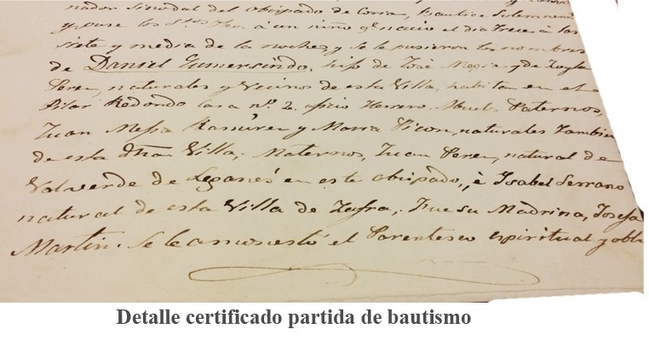 nador Sinodal del Obispado de Coria, bautice Solemnem
y puse los Stos. Oleos, á un niño qe. nacio el dia trece á las
siete y media de la noche, y se le pusieron los nombres
de Daniel Gumersindo, hijo de José Megia y de
Perez, naturales y Vecinos de esta Villa, habitan en el
Pilar Redondo casa nº. 2, oficio Herrero. Abuelos Paternos,
Juan Mesia Ramirez y Maria Picon, naturales tambien
de esta dha. Villa; Maternos, Juan Perez, natural de
Valverde de Leganes en este obispado, é Isabel Serrano
natural de esta Villa de Zafra; Fue su Madrina, Josefa
Martin. Se le amonestó el Parentesco espiritual y obli
Detalle certificado partida de bautismo